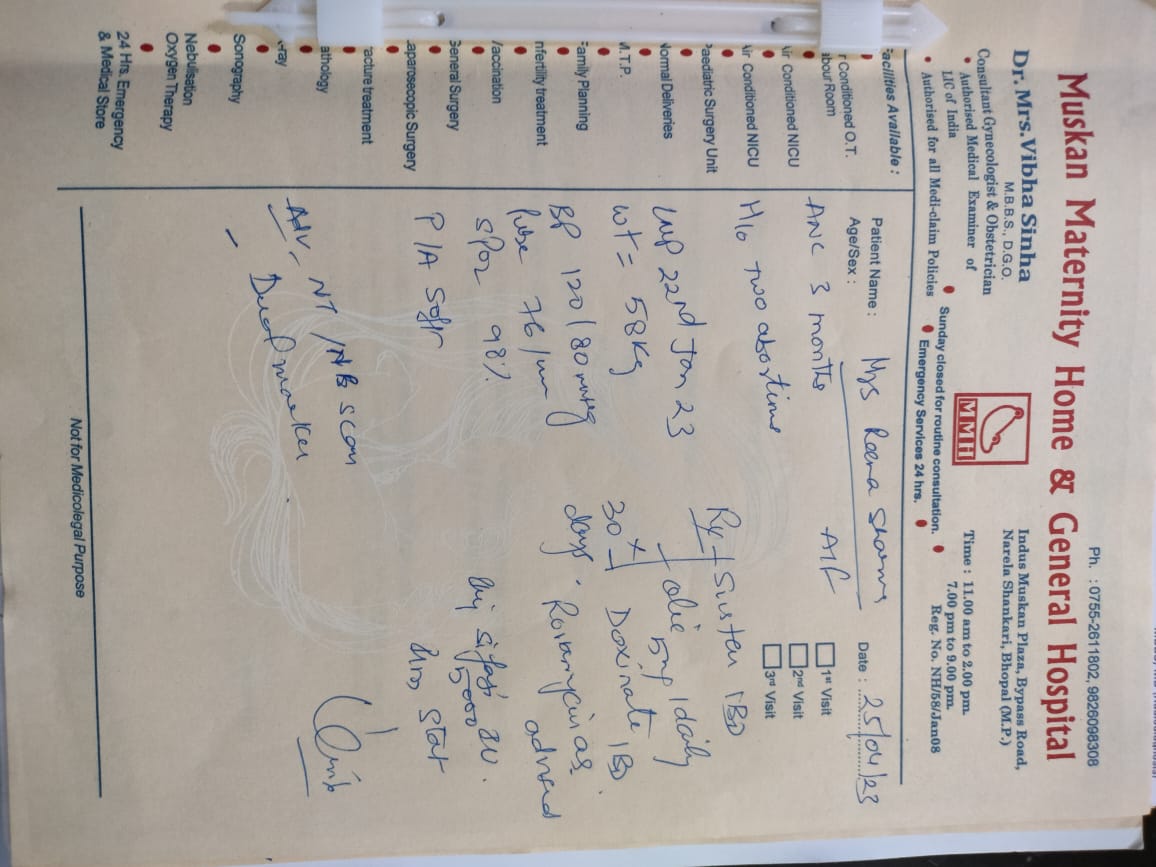 Ph. : 0755-2611802, 9826098308
Muskan Maternity Home & General Hospital
Dr. Mrs.Vibha Sinha
M.B.B.S., D.G.O.
Consultant Gynecologist & Obstetrician
• Authorised Medical Examiner of
LIC of India
• Authorised for all Medi-claim Policies
MMH
Indus Muskan Plaza, Bypass Road,
Narela Shankari, Bhopal (M.P.)
Time : 11.00 am to 2.00 pm.
7.00 pm to 9.00 pm.
Reg. No. NH/58/Jan08
• Sunday closed for routine consultation. •
• Emergency Services 24 hrs. •
Facilities Available :
r Conditioned O.T.
abour Room
Air Conditioned NICU
Air Conditioned NICU
Paediatric Surgery Unit
Normal Deliveries
M.T.P.
Family Planning
nfertility treatment
Vaccination
General Surgery
Laparoseopic Surgery
racture treatment
athology
-ray
Sonography
Nebulisation
Oxygen Therapy
24 Hrs. Emergency
& Medical Store
Patient Name : Mrs Reena Sharma
Date : 25/04/23
Age/Sex :
1st Visit
2nd Visit
3rd Visit
ANC 3 months
H/o two abortions
LMP 22nd Jan 23
Wt = 58Kg
BP 120/80 mmHg
Pulse 76/min
SPO2 98%
P/A Soft
Adv NT/NB scan
Dual marker
Rx
Susten 1BD
5mg 1daily
x 30 days
Doxinate 1BD
advised
5000 IU
stat
Not for Medicolegal Purpose